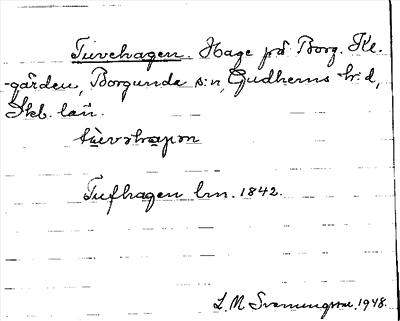 Tuvehagen. Hage på Borg. Kl.
-gården, Borgunda s:n, Gudhems h:d,
Skb. län.
Tufhagen lm. 1842.
L. M. Svenungsson. 1948.